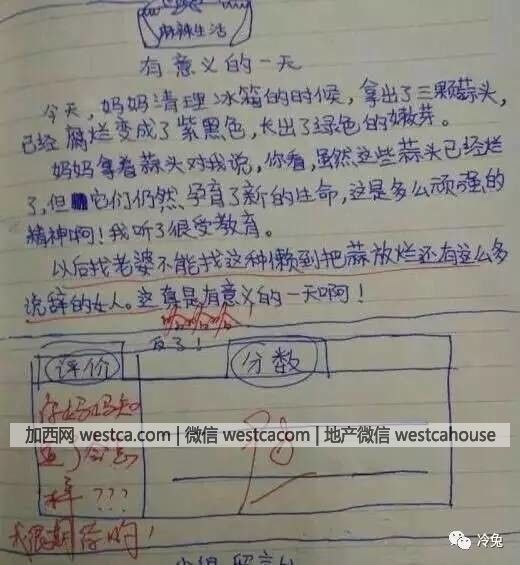 麻辣生活
有意义的一天
今天，妈妈清理冰箱的时候，拿出了三颗蒜头，
已经腐烂变成了紫黑色，长出了绿色的嫩芽。
妈妈拿着蒜头对我说，你看，虽然这些蒜头已经烂
了，但它们仍然孕育了新的生命，这是多么顽强的
精神啊！我听了很受教育。
以后找老婆不能找这种懒到把蒜放烂还有这么多
说辞的女人。这真是有意义的一天啊！
哈哈哈
评价
分数
你妈妈知
加西网 westca.com | 微信 westcacom | 地产微信 westcahouse
道了会怎
样???
我很期待哟！
冷兔